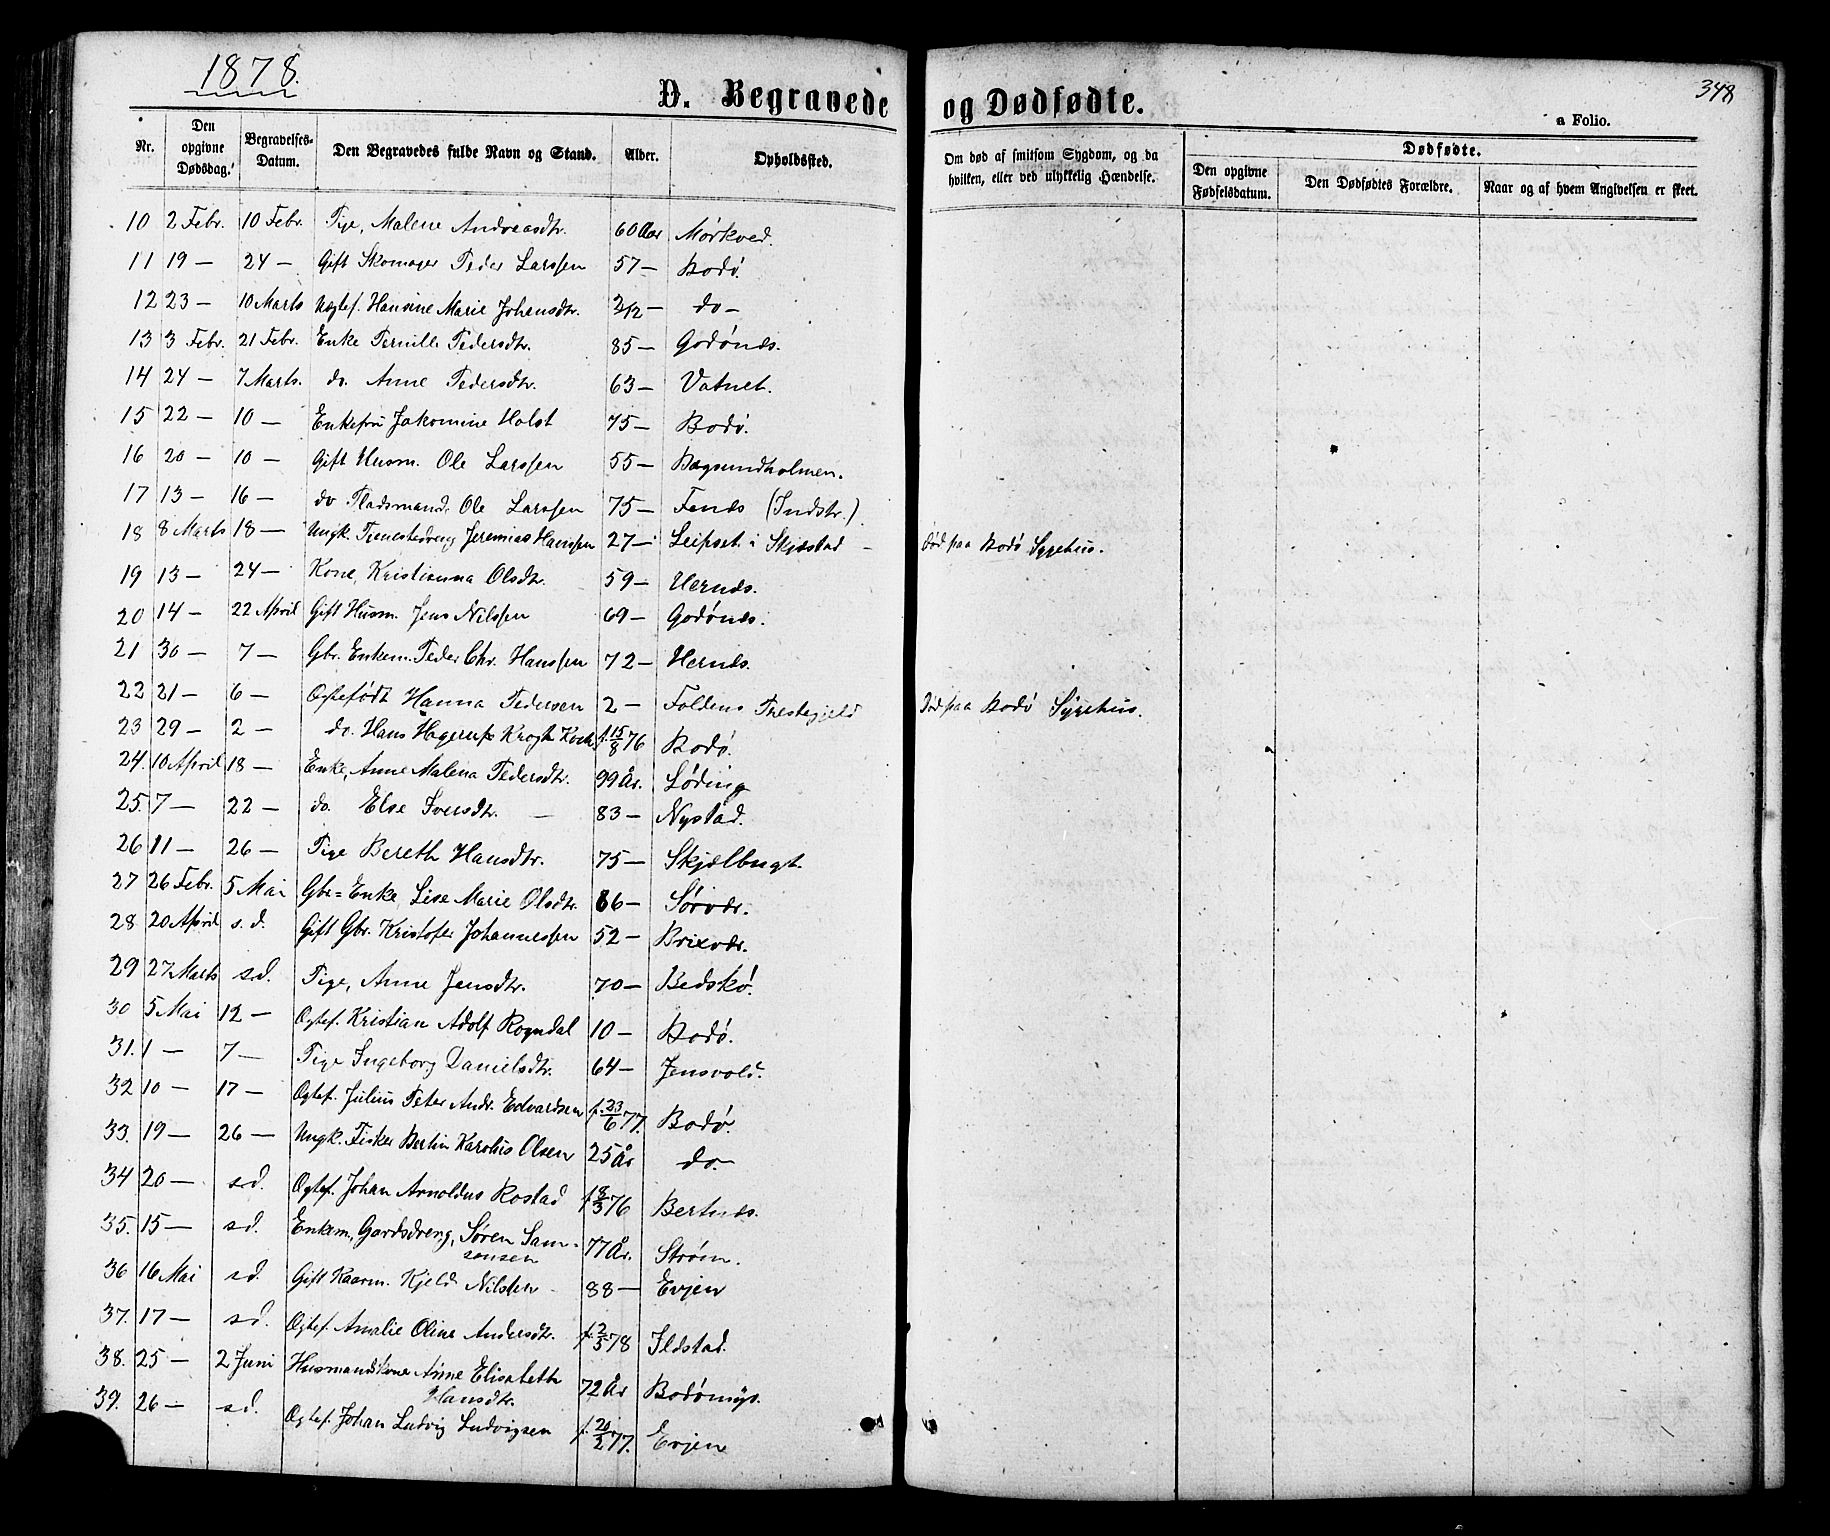 1878.
348
D. Begravede og Dødfødte.
a Folio.
Nr. Den opgivne Dødsdag. Begravelses-Datum. Den Begravedes fulde Navn og Stand. Alder. Opholdssted. Om død af smitsom Sygdom, og da hvilken, eller ved ulykkelig Hændelse. Dødfødte.
Den opgivne Fødselsdatum. Den Dødfødtes Forældre. Naar og af hvem Angivelsen er skeet.
10 2 Febr. 10 Febr. Pige, Malene Andreasdtr. 60 Aar Mørkved.
11 19 — 24 — Gift Skomager Peder Larssen 57 — Bodø.
12 23 — 10 Marts Uægtef. Hansine Marie Johansdtr. 2/12 — do —
13 3 Febr. 21 Febr. Enke Pernille Pedersdtr. 85 — Godønes.
14 24 — 7 Marts. do. Anne Pedersdtr. 63 — Vatnet.
15 22 — 10 — Enkefru Jakomine Holst 75 — Bodø.
16 20 — 10 — Gift Husm. Ole Larssen 55 — Bagsundholmen.
17 13 — 16 — do Pladsmand, Ole Larssen 75 — Fenes (Indstr.).
18 8 Marts 18 — Ungk. Tjenestedreng Jeremias Hanssen 27 — Leipset i Skjæstad — Død paa Bodø Sygehus.
19 13 — 24 — Kone, Kristianna Olsdtr. 59 — Hernes.
20 14 — 22 April Gift Husm. Jens Nilssen 69 — Godønes.
21 30 — 7 — Gbr. Enkem. Peder Chr. Hanssen 72 — Hernes.
22 21 — 6 — Ægtefødt Hanna Pedersen 2 — Foldens Prestegjeld Død paa Bodø Sygehus.
23 29 — 2 — do. Hans Hagerup Krogh Koch f. 15/8 76 Bodø.
24. 10 April 18 — Enke, Anne Malena Pedersdtr. 99 År. Løding
25. 7 — 22 — do. Else Iversdtr. — 83 — Nystad.
26 11 — 26 — Pige Bereth Hansdtr. 75 — Skjælbugt.
27 26 Febr. 5 Mai Gbr = Enke, Lise Marie Olsdtr. 66 — Sørvær.
28 20 April s. d. Gift Gbr. Kristofer Johannessen 52 — Brixvær.
29 27 Marts s.d. Pige, Anne Jensdtr. 70 — Bedskø.
30 5 Mai 12 — Ægtef. Kristian Adolf Rogndal 10 — Bodø.
31. 1 — 7 — Pige Ingeborg Danielsdtr. 64 — Jensvold.
32 10 — 17 — Ægtef. Julius Peter Andr. Edvardsen f. 23/6 77. Bodø.
33. 19 — 26 — Ungk. Fisker Bertin Karolius Olsen 25 År do. —
34 20 — s.d. Ægtef. Johan Arnoldus Rostad f. 8/3 76 Bertnes.
35. 15 — s.d. Enkem., Gaardsdreng, Søren Sam-
sonsen 77 År. Strøm.
36 16 Mai s.d. Gift Kaarm. Kjeld Nilssen 88 — Evjen
37. 17 — s.d. Ægtef. Amalie Oline Andersdtr. f. 2/3 78 Ildstad.
38. 25 — 2 Juni Husmandskone Anne Elisabeth
Hansdtr. 72 År Bodømyr.
39. 26 — s.d. Ægtef. Johan Ludvig Ludvigsen f. 20/2 77. Evjene